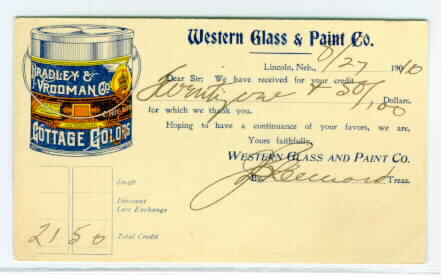 Western Glass & Paint Co.
Lincoln, Neb., 8/27 1910
Dear Sir: We have received for your credit
Twenty one & 50/100 Dollars.
for which we thank you.
Hoping to have a continuance of your favors, we are,
Yours faithfully,
WESTERN GLASS AND PAINT CO.
By Treas.
BRADLEY &
VROOMAN CO
CHICAGO
COTTAGE COLORS
Cash
Discount
Less Exchange
21 50 Total Credit